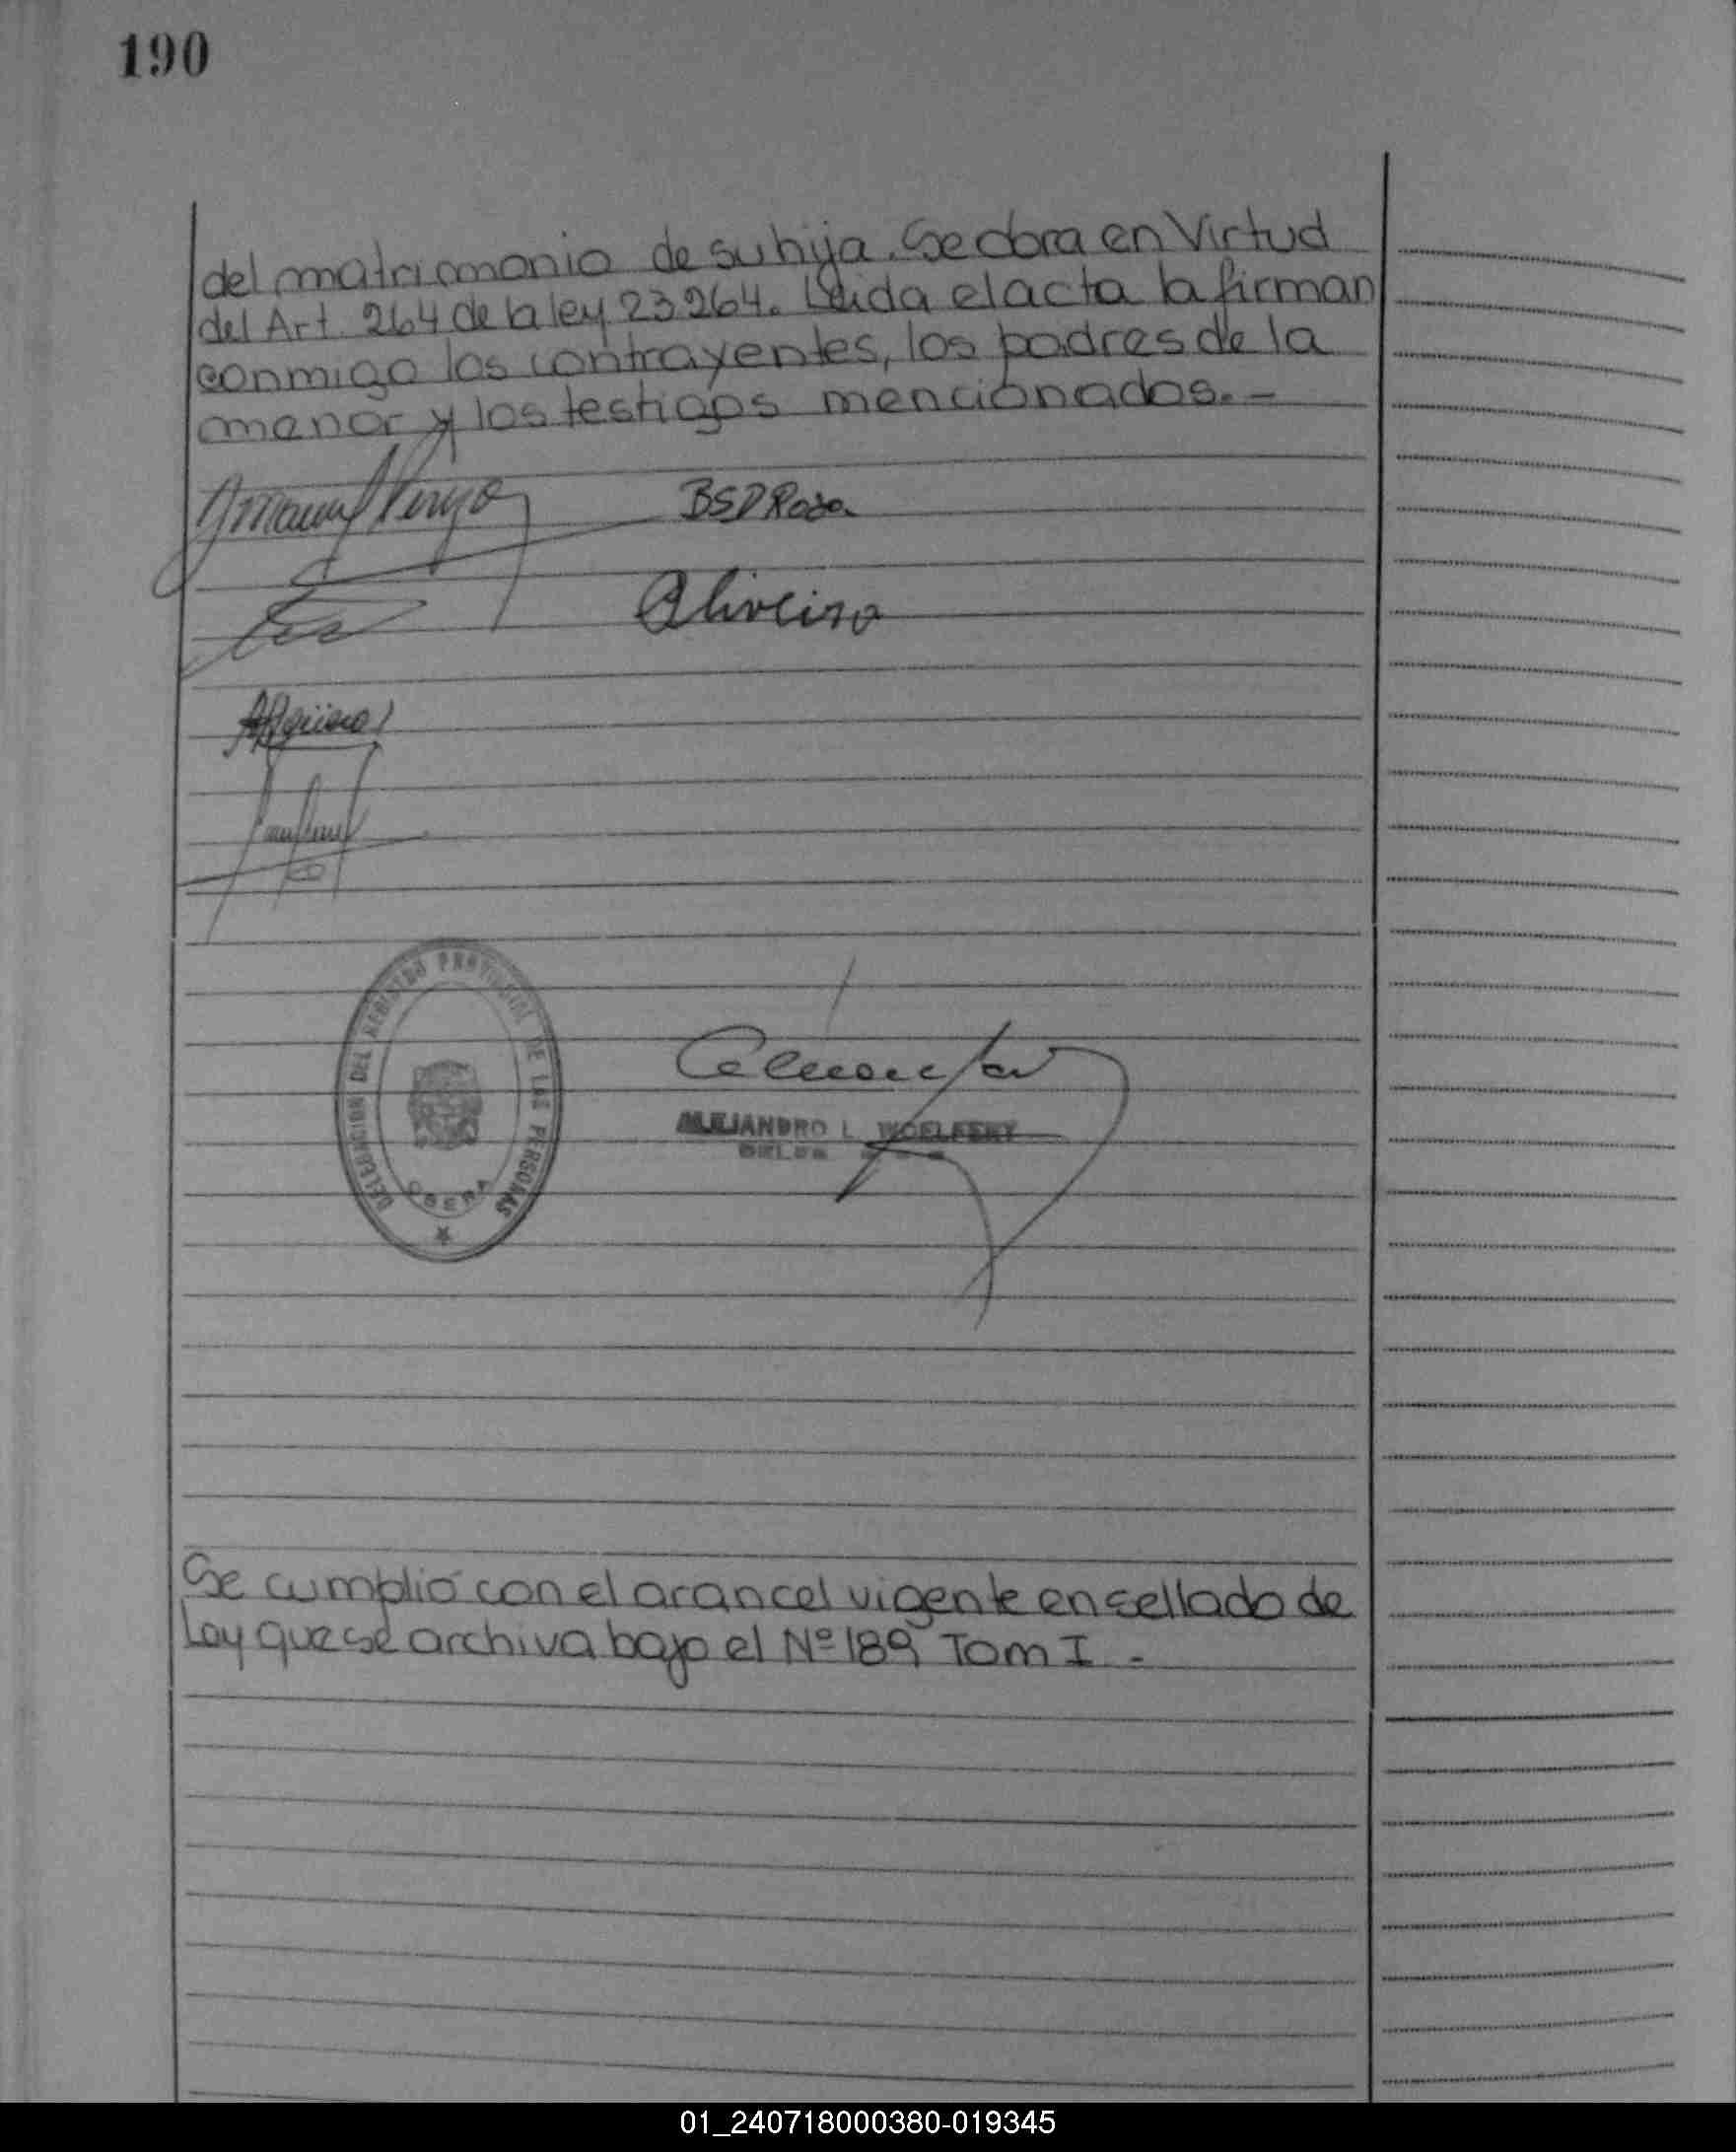 190
del matrimonio de su hija. Se obra en Virtud
del Art. 264 de la ley 23264. Leida el acta la firman
conmigo los contrayentes, los padres de la
menor y los testigos mencionados. -
BSDRosa
Oliveira
DELEGACION DEL REGISTRO PROVINCIAL DE LAS PERSONAS
OBERA
ALEJANDRO L.
Se cumplió con el arancel vigente en sellado de
Ley que se archiva bajo el Nº 189 Tom I -
01_240718000380-019345